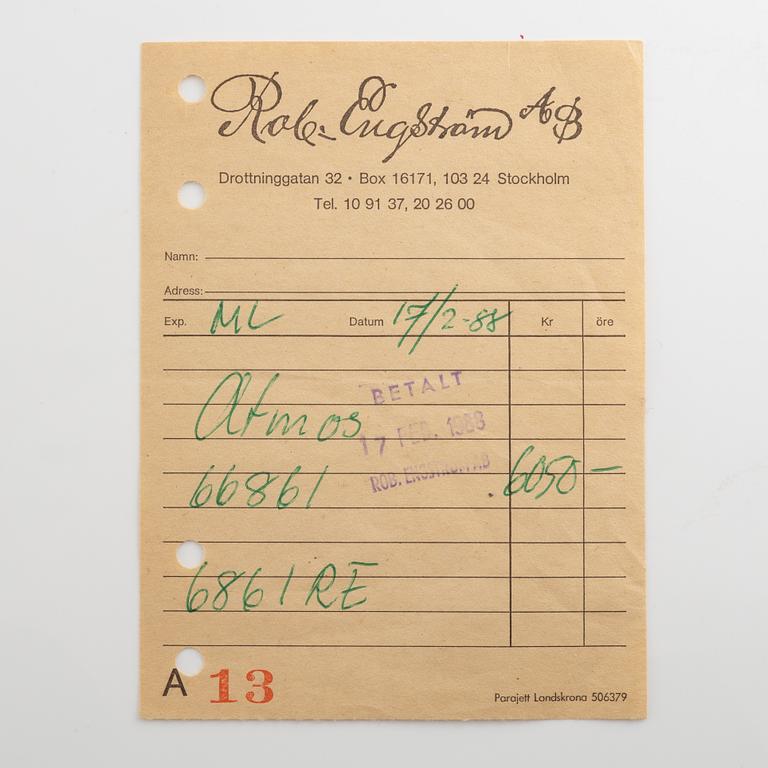 Rob. Engström AB
Drottninggatan 32 • Box 16171, 103 24 Stockholm
Tel. 10 91 37, 20 26 00
Namn:
Adress:
Exp. ML Datum 17/2-88 Kr öre
BETALT
Atmos
17 FEB. 1988
ROB. ENGSTRÖM AB
66861 6050 —
6861 RE
A 13
Parajett Landskrona 506379